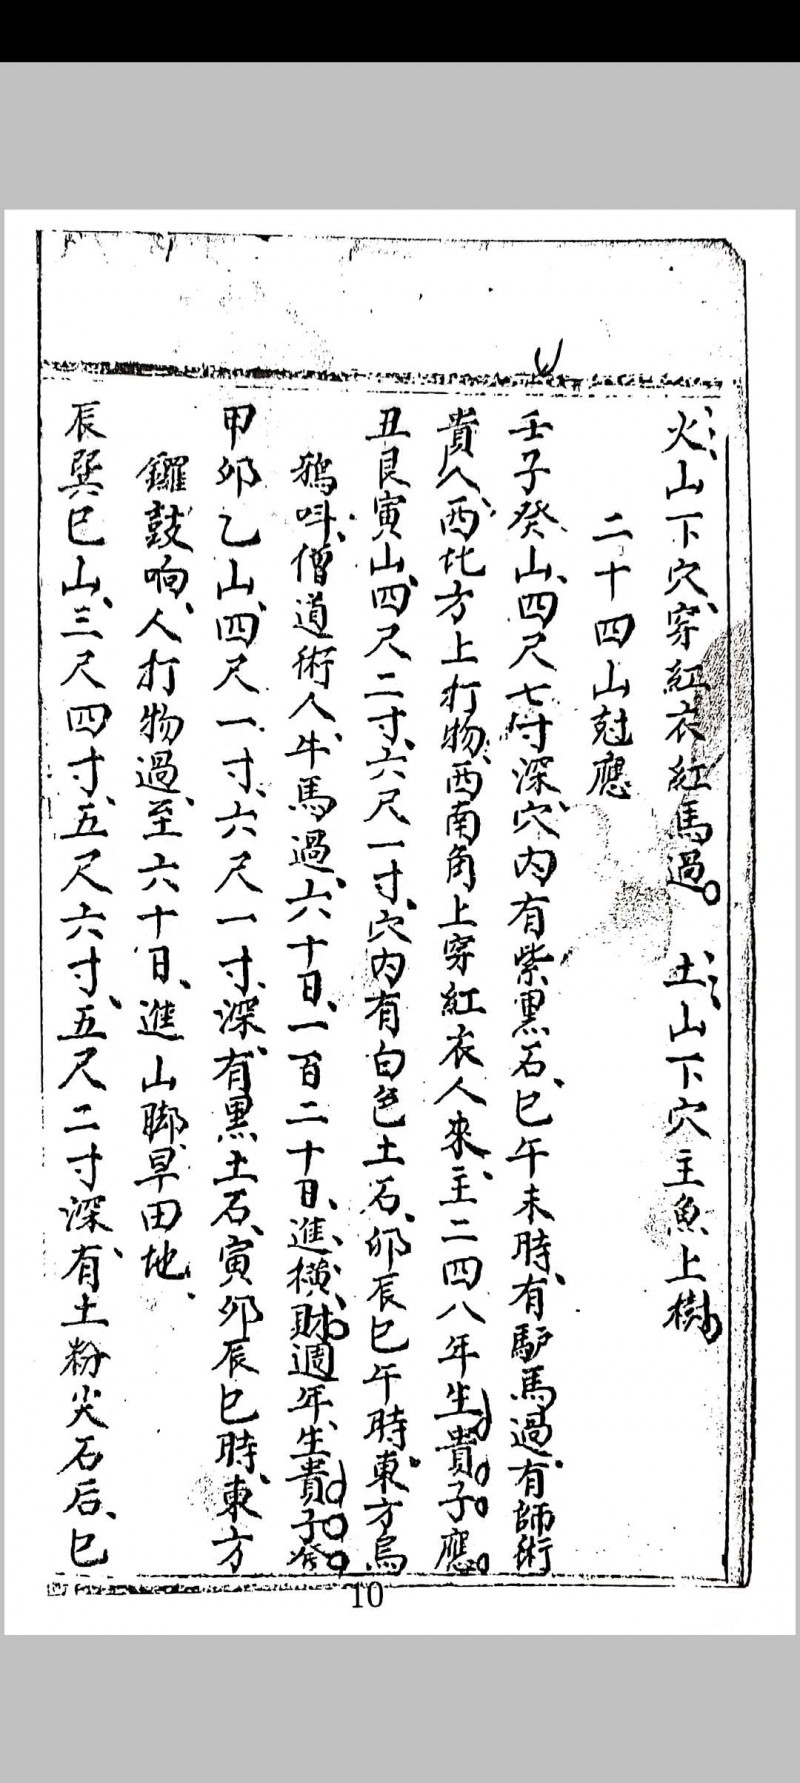 火山下穴、穿紅衣紅馬過。 土山下穴主魚上樹。
二十四山尅應
壬子癸山、四尺七寸深、穴内有紫黑石、巳午未時、有馿馬過、有師術
貴人、西北方上打物、西南角上穿紅衣人來、主二四八年生貴子應。
丑艮寅山、四尺二寸、六尺一寸、穴内有白色土石、卯辰巳午時、東方烏
鴉呌、僧道術人、牛馬過、六十日、一百二十日、進橫財、週年、生貴子發。
甲卯乙山、四尺一寸、六尺一寸、深、有黑土石、寅卯辰巳時、東方
鑼鼓响、人打物過、至六十日、進山脚旱田地、
辰巽巳山、三尺四寸、五尺六寸、五尺二寸深、有土粉尖石后、巳
10